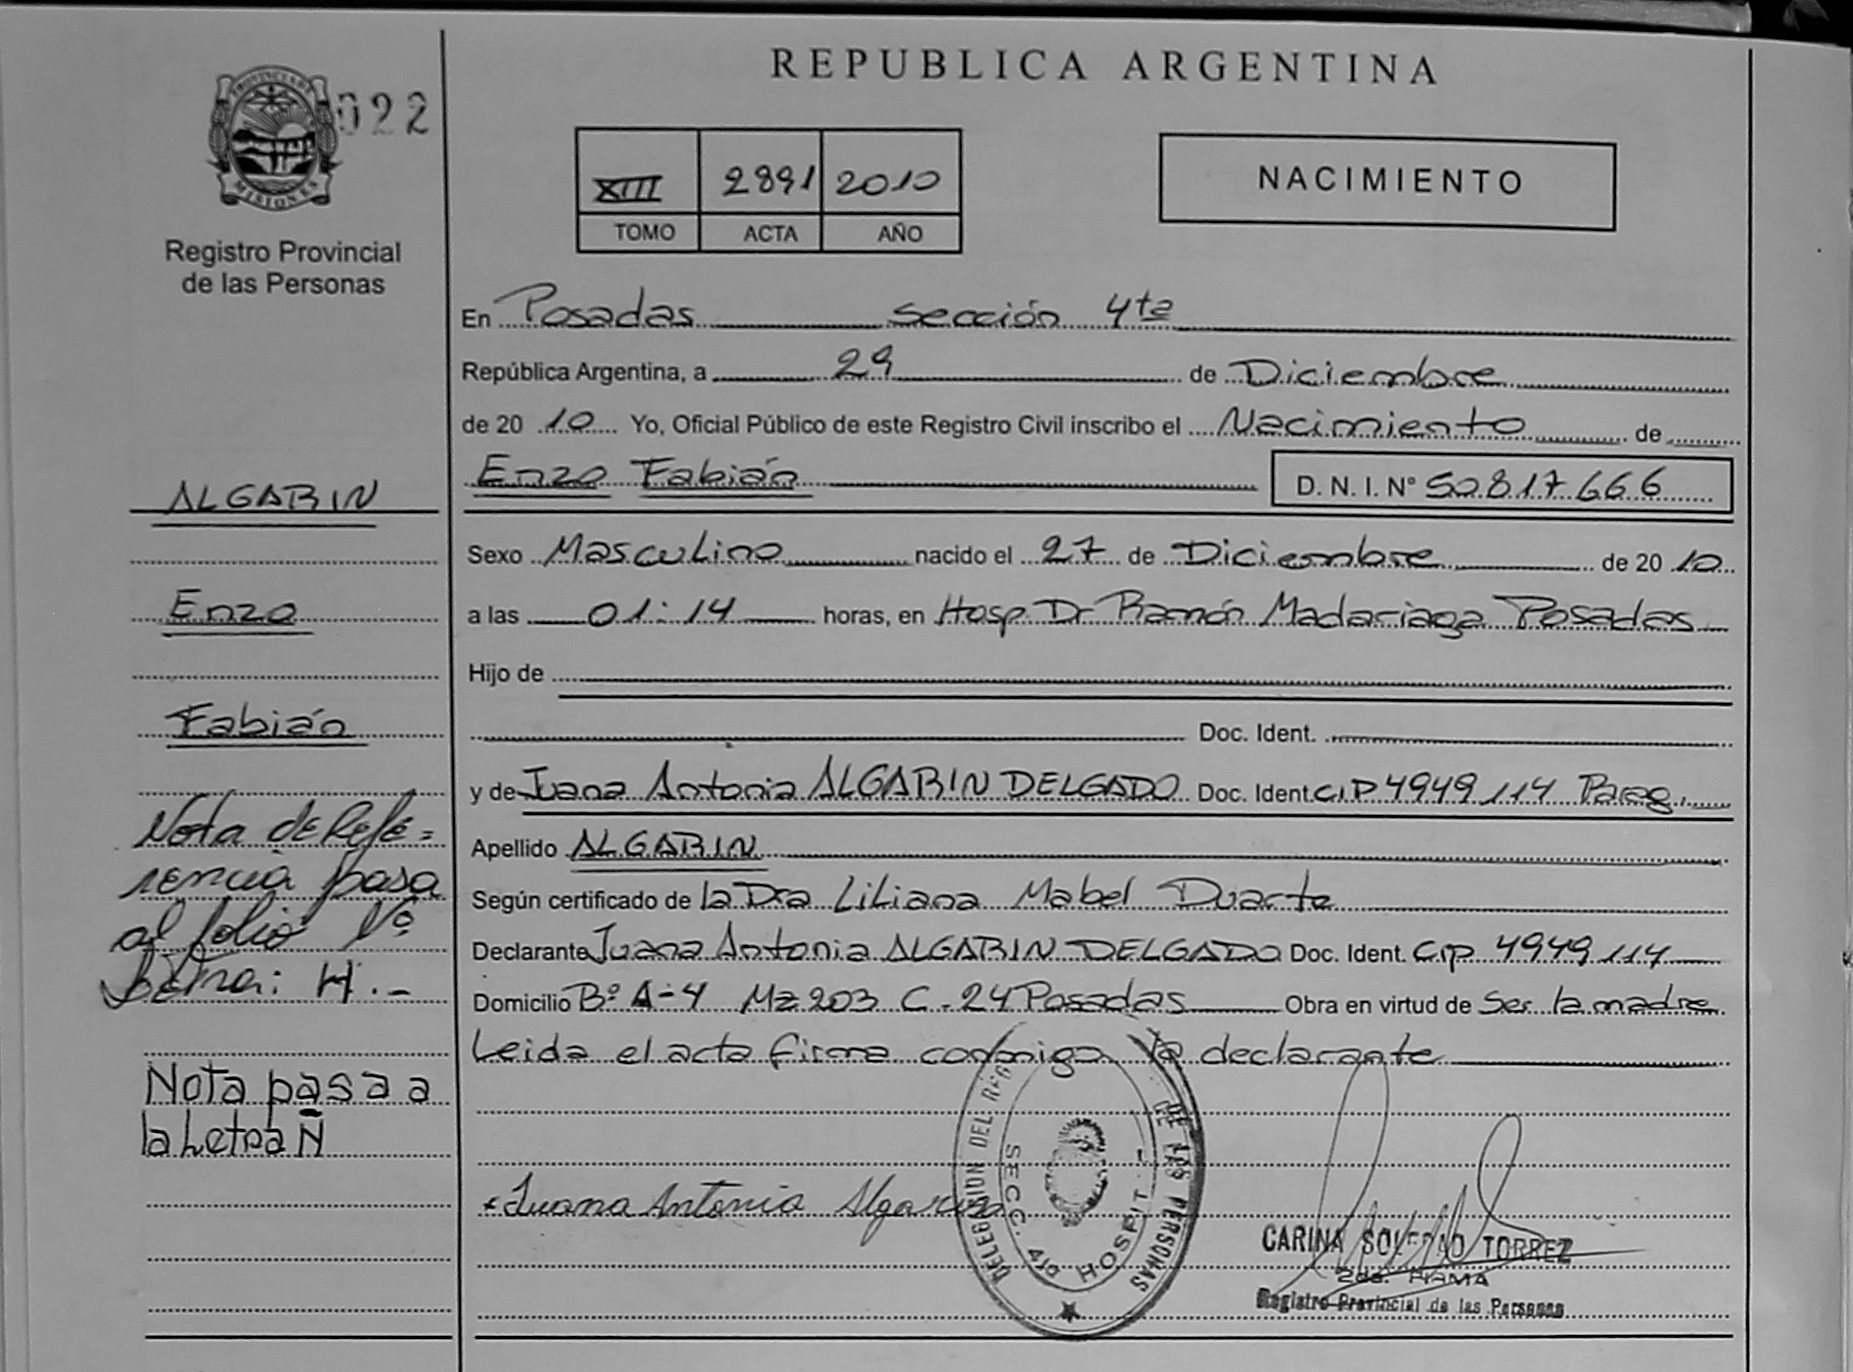 REPUBLICA ARGENTINA
022
PROVINCIA DE MISIONES
Registro Provincial
de las Personas
XIII 2891 2010
TOMO ACTA AÑO
NACIMIENTO
En Posadas sección 4ta
República Argentina, a 29 de Diciembre
de 20 10 Yo, Oficial Público de este Registro Civil inscribo el Nacimiento de
Enzo Fabián D. N. I. Nº 50.817.666
Sexo Masculino nacido el 27 de Diciembre de 20 10
a las 01:14 horas, en Hosp. Dr Ramón Madariaga Posadas
Hijo de
Doc. Ident.
y de Juana Antonia ALGARIN DELGADO Doc. Ident. C.I.P 4949.114 Parag.
Apellido ALGARIN
Según certificado de la Dra Liliana Mabel Duarte
Declarante Juana Antonia ALGARIN DELGADO Doc. Ident. CIP 4949.114
Domicilio Bº A-4 Mz 203 C-24 Posadas Obra en virtud de Ser la madre
Leida el acta firma conmigo la declarante
ALGARIN
Enzo
Fabián
Nota de Refe=
rencia pasa
al folio Nº
Letra: H.-
Nota pasa a
la Letra Ñ
Juana Antonia Algarin
DELEGACION DEL REG. DE LAS PERSONAS
SECC. 4ta HOSPIT.
CARINA SOLEDAD TORREZ
2da. FIRMA
Registro Provincial de las Personas